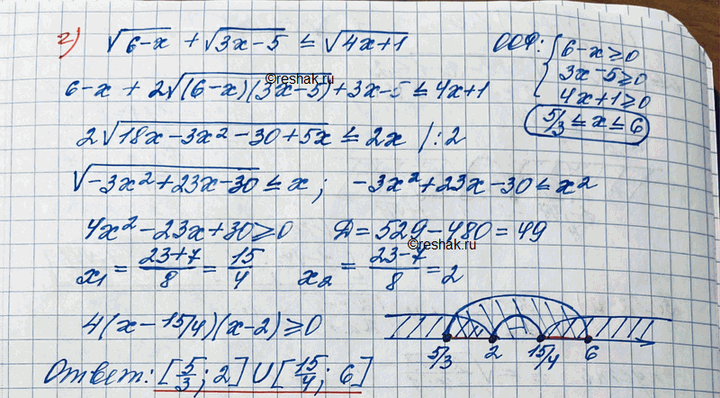 2) √(6-x) + √(3x-5) ≤ √(4x+1) ООФ: { 6-x≥0
3x-5≥0
4x+1≥0
5/3 ≤ x ≤ 6
6-x + 2√((6-x)(3x-5)) + 3x-5 ≤ 4x+1
©reshak.ru
2√(18x-3x²-30+5x) ≤ 2x /:2
√(-3x²+23x-30) ≤ x; -3x²+23x-30 ≤ x²
4x²-23x+30≥0 D=529-480=49
©reshak.ru
x₁ = (23+7)/8 = 15/4 x₂ = (23-7)/8 = 2
4(x-15/4)(x-2)≥0
5/3 2 15/4 6
Ответ: [5/3; 2] U [15/4; 6]